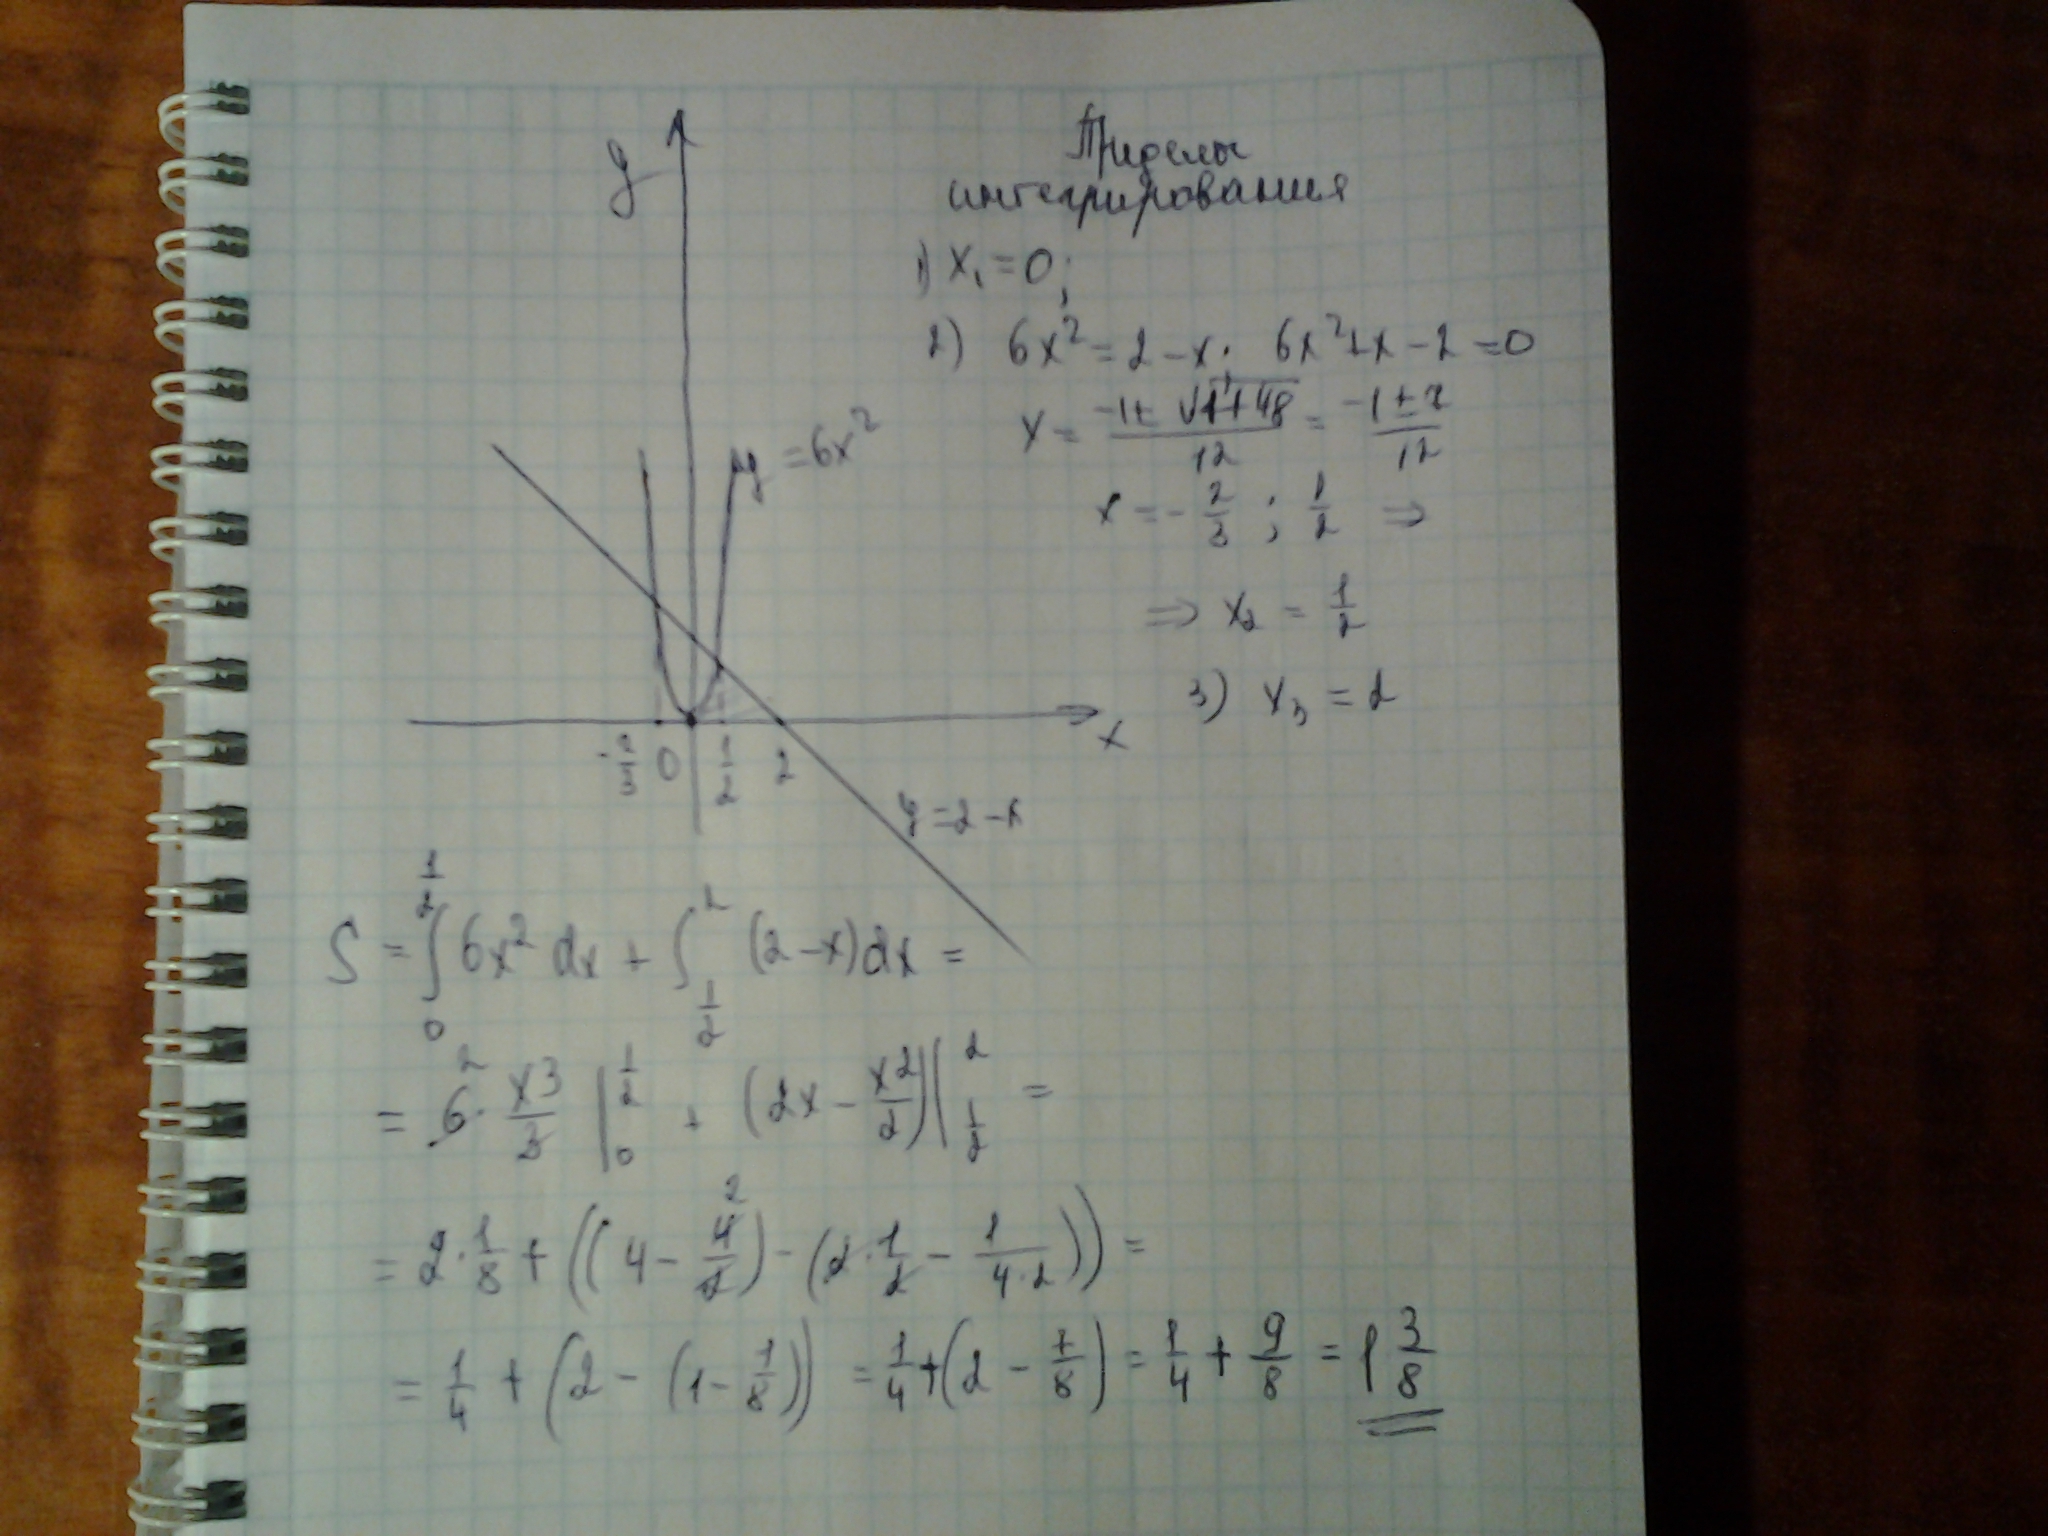 y
Приделы
интегрирования
1) x₁ = 0;
2) 6x² = 2 - x; 6x² + x - 2 = 0
x = (-1 ± √(1 + 48))/12 = (-1 ± 7)/12
y = 6x²
x = -2/3 ; 1/2 ⇒
⇒ x₂ = 1/2
3) x₃ = 2
x
-2/3 0 1/2 2
y = 2 - x
S = ∫₀^(1/2) 6x² dx + ∫_(1/2)^2 (2 - x)dx =
= 6² · x3/3 |₀^(1/2) + (2x - x2/2)|_(1/2)^2 =
= 2 · 1/8 + ((4 - 4²/2) - (2 · 1/2 - 1/(4·2))) =
= 1/4 + (2 - (1 - 1/8)) = 1/4 + (2 - 7/8) = 1/4 + 9/8 = 1 3/8